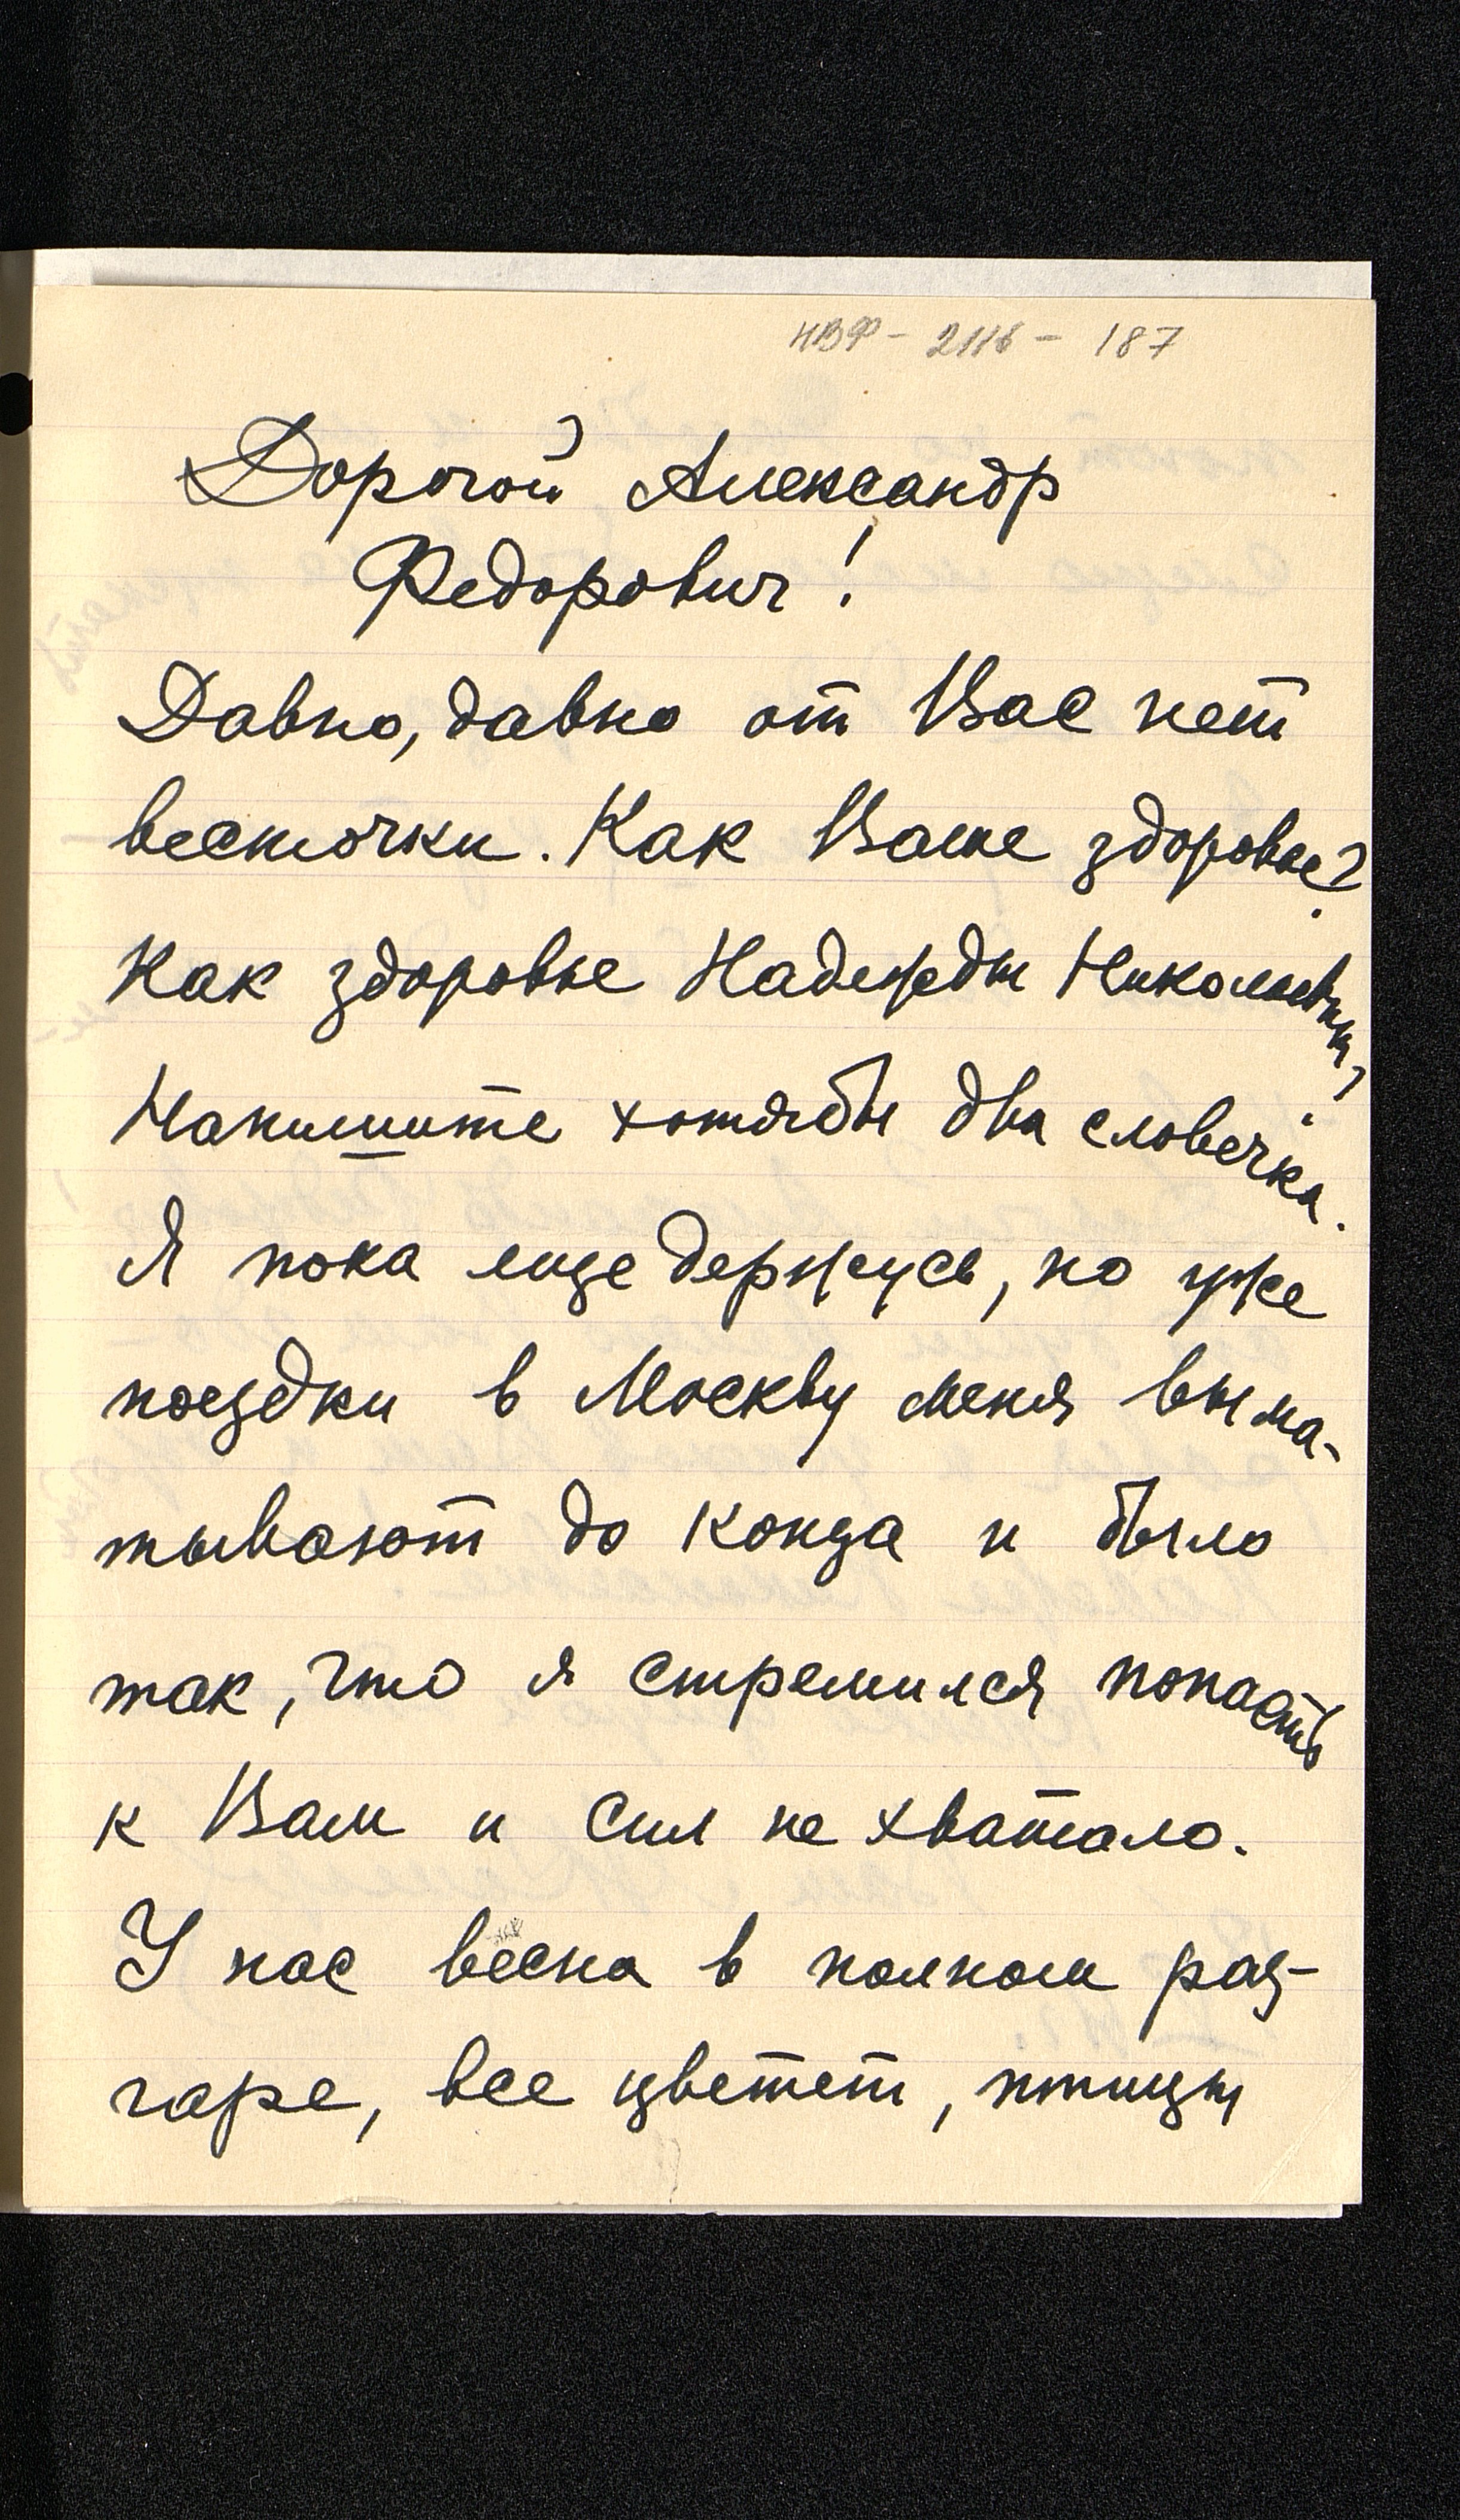 НВФ - 2116 - 187
Дорогой Александр
Федорович!
Давно, давно от Вас нет
весточки. Как Ваше здоровье?
Как здоровье Надежды Николаевны?
Напишите хотябы два словечка.
Я пока еще держусь, но уже
поездки в Москву меня выма-
тывают до конца и было
так, что я стремился попасть
к Вам и сил не хватало.
У нас весна в полном раз-
гаре, все цветет, птицы